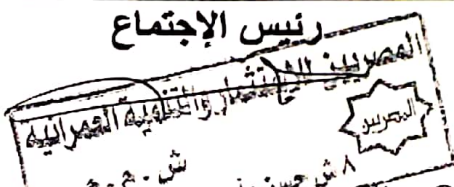 رئيس الإجتماع
المصريين للإستثمار والتنمية العمرانية
المصريين
ش.م.م
٨ ش حسن